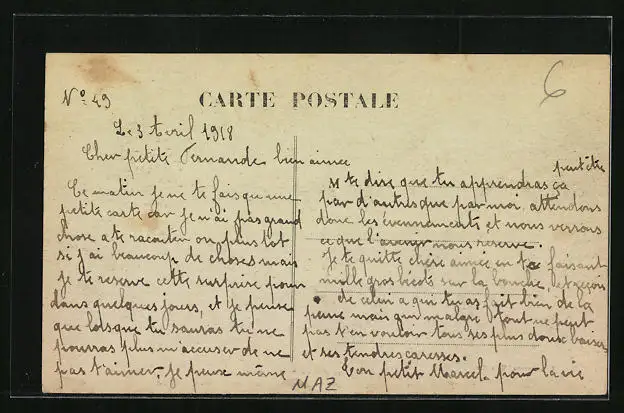 N° 49
6
CARTE POSTALE
Le 3 Avril 1918
Cher petite Fernande bien aimée
Ce matin je ne te fais qu'une
petite carte car je n'ai pas grand
chose a te raconter ou plus tot
si j'ai beaucoup de choses mais
je te reserve cette surprise pour
dans quelques jours, et je pense
que lorsque tu sauras tu ne
pourras plus m'accuser de ne
pas t'aimer. Je peux même
peut être
te dire que tu apprendras ça
par d'autres que par moi, attendons
donc les évennements et nous verrons
ce que l'avenir nous reserve.
Je te quitte chère aimée en te faisant
mille gros bécots sur la bouche, et reçois
de celui a qui tu as fait bien de la
peine mais qui malgre tout ne peut
pas t'en vouloir tous ses plus doux baisers
et ses tendres caresses.
Ton petit Marcel pour la vie
MAZ